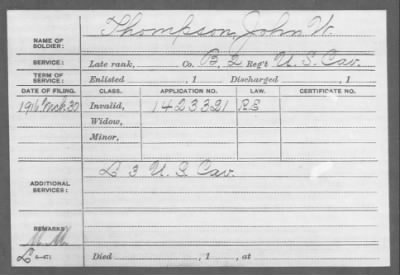 NAME OF SOLDIER: Thompson, John W.
SERVICE: Late rank, Co. B, 2 Reg't U. S. Cav.
TERM OF SERVICE: Enlisted , 1 Discharged , 1
DATE OF FILING. CLASS. APPLICATION NO. LAW. CERTIFICATE NO.
1916 Mch. 30 Invalid, 1423321
Widow,
Minor,
ADDITIONAL SERVICES: L 3 U. S. Cav.
REMARKS:
Died , 1 , at